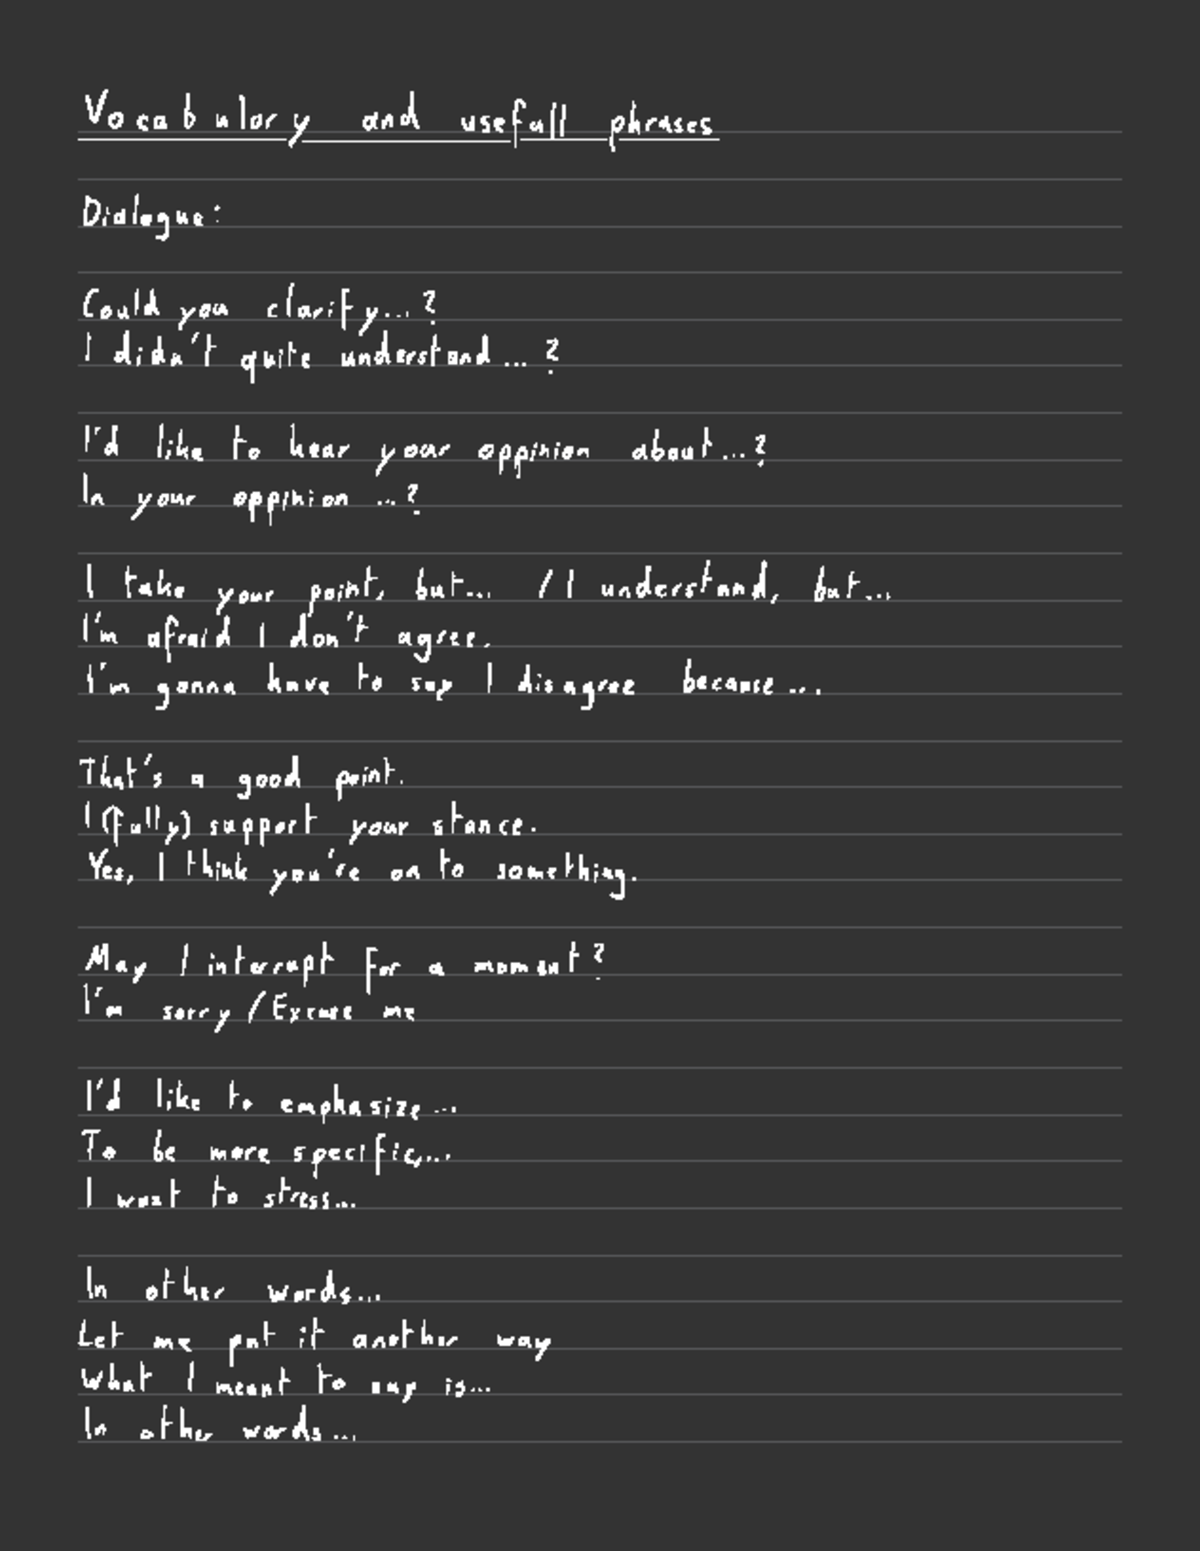 Vocabulary and usefull phrases
Dialogue:
Could you clarify...?
I didn't quite understand...?
I'd like to hear your oppinion about...?
In your oppinion ...?
I take your point, but... / I understand, but...
I'm afraid I don't agree.
I'm gonna have to say I disagree because...
That's a good point.
I (fully) support your stance.
Yes, I think you're on to something.
May I interrupt for a moment?
I'm sorry / Excuse me
I'd like to emphasize...
To be more specific,...
I want to stress...
In other words...
Let me put it another way
What I meant to say is...
In other words...